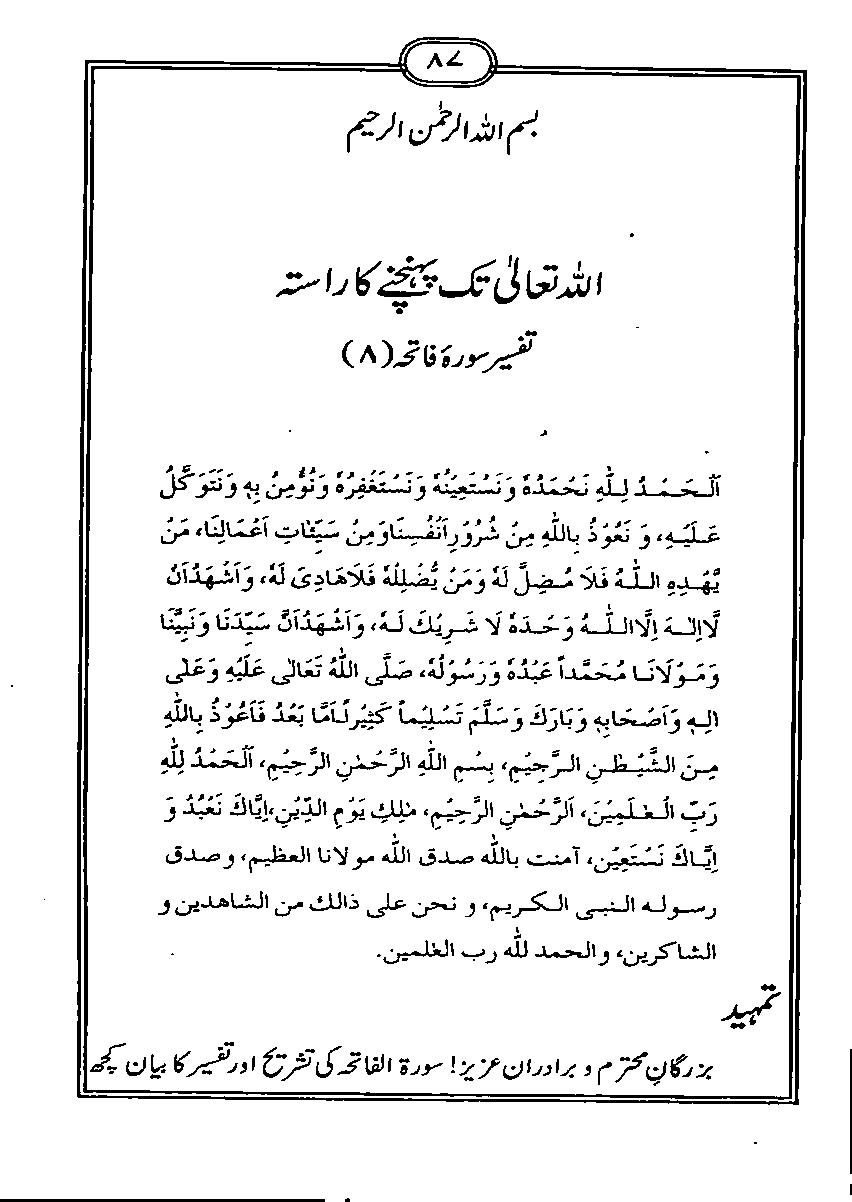 ۸۷
بسم اللہ الرحمٰن الرحیم
اللہ تعالیٰ تک پہنچنے کا راستہ
تفسیر سورۂ فاتحہ (۸)
اَلْحَمْدُ لِلّٰهِ نَحْمَدُهٗ وَنَسْتَعِيْنُهٗ وَنَسْتَغْفِرُهٗ وَنُؤْمِنُ بِهٖ وَنَتَوَكَّلُ
عَلَيْهِ، وَ نَعُوْذُ بِاللّٰهِ مِنْ شُرُوْرِ اَنْفُسِنَا وَمِنْ سَيِّئَاتِ اَعْمَالِنَا، مَنْ
يَّهْدِهِ اللّٰهُ فَلاَ مُضِلَّ لَهٗ وَمَنْ يُّضْلِلْهُ فَلاَ هَادِىَ لَهٗ، وَاَشْهَدُ اَنْ
لَّا اِلٰهَ اِلَّا اللّٰهُ وَحْدَهٗ لَا شَرِيْكَ لَهٗ، وَاَشْهَدُ اَنَّ سَيِّدَنَا وَنَبِيَّنَا
وَمَوْلَانَا مُحَمَّداً عَبْدُهٗ وَرَسُوْلُهٗ، صَلَّى اللّٰهُ تَعَالٰى عَلَيْهِ وَعَلٰى
اٰلِهٖ وَاَصْحَابِهٖ وَبَارَكَ وَسَلَّمَ تَسْلِيْماً كَثِيْراً اَمَّا بَعْدُ فَاَعُوْذُ بِاللّٰهِ
مِنَ الشَّيْطٰنِ الرَّجِيْمِ، بِسْمِ اللّٰهِ الرَّحْمٰنِ الرَّحِيْمِ، اَلْحَمْدُ لِلّٰهِ
رَبِّ الْعٰلَمِيْنَ، اَلرَّحْمٰنِ الرَّحِيْمِ، مٰلِكِ يَوْمِ الدِّيْنِ، اِيَّاكَ نَعْبُدُ وَ
اِيَّاكَ نَسْتَعِيْن، آمنت بالله صدق الله مولانا العظيم، و صدق
رسوله النبى الكريم، و نحن على ذالك من الشاهدين و
الشاكرين، والحمد لله رب العٰلمين.
تمہید
بزرگان محترم و برادران عزیز! سورۃ الفاتحہ کی تشریح اور تفسیر کا بیان کچھ